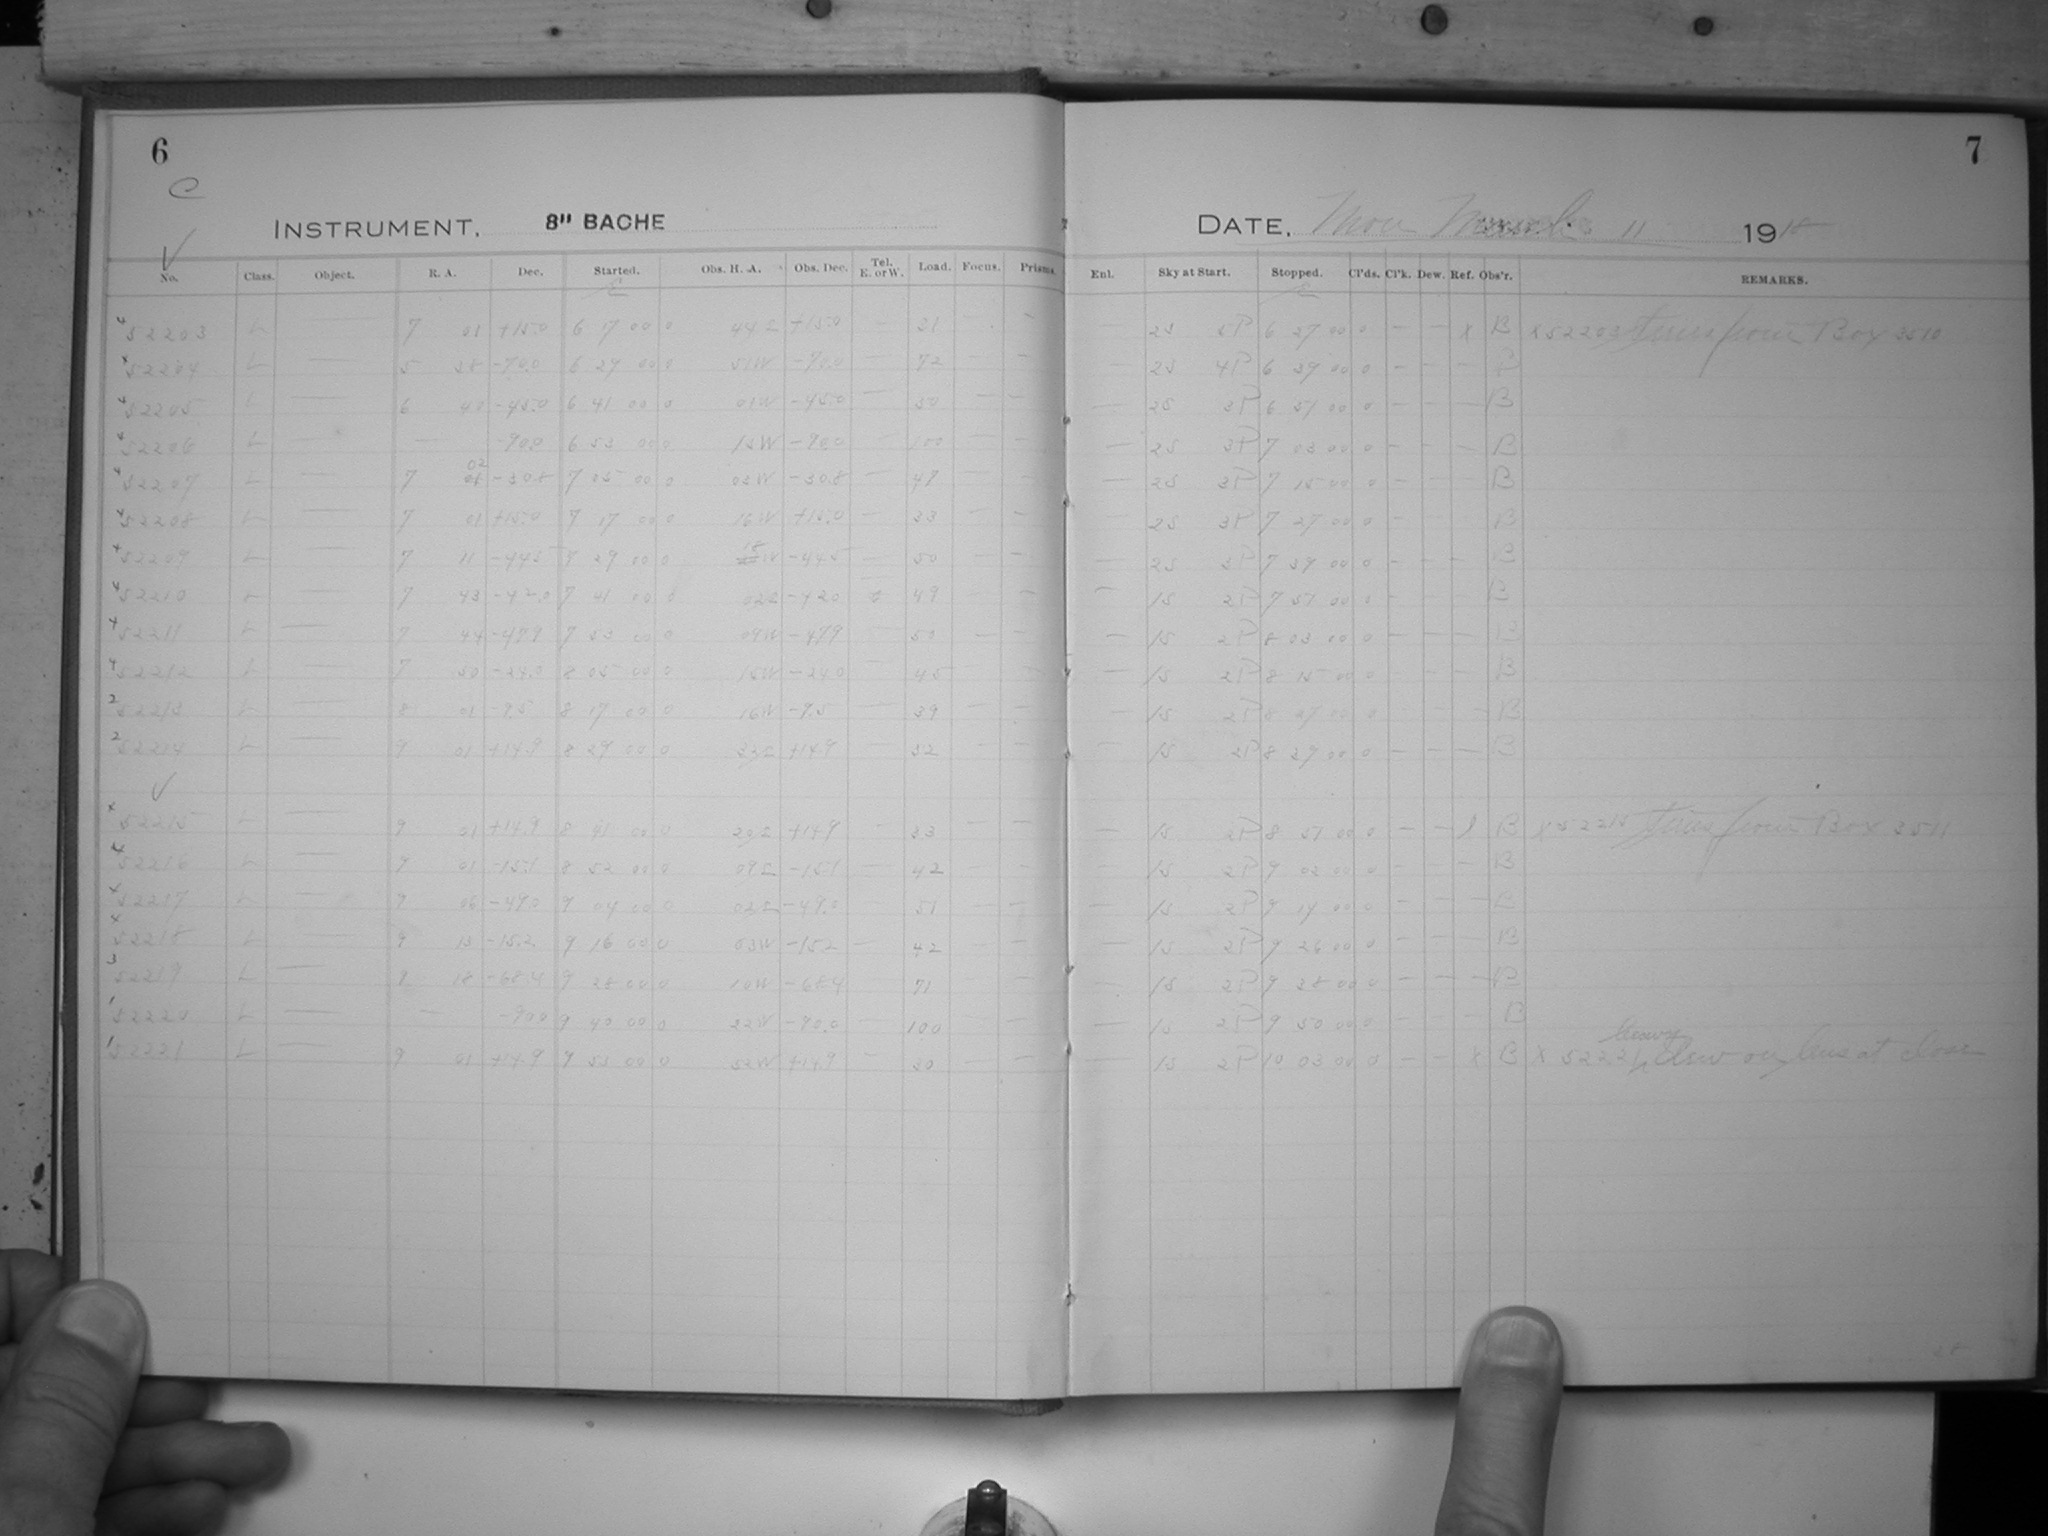 6
7
C
INSTRUMENT, 8" BACHE
DATE, Mon March 11 1918
No. Class. Object. R. A. Dec. Started. Obs. H. A. Obs. Dec. Tel. E. or W. Load. Focus. Prisms.
Enl. Sky at Start. Stopped. Cl'ds. Cl'k. Dew. Ref. Obs'r. REMARKS.
4 52203 L — 7 01 +15.0 6 17 00 0 44E +15.0 — 31 — — — 2S 5P 6 27 00 0 — — x B x 52203 from Box 3510
4 52204 L — 5 28 -70.0 6 29 00 0 51W -70.0 — 72 — — — 2S 4P 6 39 00 0 — — — B
4 52205 L — 6 -45.0 6 41 00 0 01W -45.0 — 50 — — — 2S 3P 6 51 00 0 — — — B
4 52206 L — — -90.0 6 53 00 0 13W -90.0 — 100 — — — 2S 3P 7 03 00 0 — — — B
4 52207 L — 7 02 -30.8 7 05 00 0 03W -30.8 — 47 — — 2S 3P 7 15 00 0 — — — B
4 52208 L — 7 01 +15.0 7 17 00 0 16W +15.0 — 33 — — — 2S 3P 7 27 00 0 — B
4 52209 L — 7 11 -44.5 7 29 00 0 18W -44.5 — 50 — — — 2S 3P 7 39 00 0 — — — B
4 52210 L — 7 43 -42.0 7 41 00 0 02E -42.0 49 — — — 1S 2P 7 51 00 0 — — — B
4 52211 L — 7 44 -47.9 7 53 00 0 09W -47.9 — 50 — — — 1S 2P 8 03 00 0 — — — B
4 52212 L — 7 50 -24.0 8 05 00 0 15W -24.0 — 45 — — 1S 2P 8 15 00 0 — — — B
2 52213 L — 8 01 -9.5 8 17 00 0 16W -9.5 — 39 — — — 1S 2P 8 27 00 0 — — — B
2 52214 L — 9 01 +14.9 8 29 00 0 32E +14.9 — 32 — — — 1S 2P 8 39 00 0 — — — B
4 52215 L — 9 01 +14.9 8 41 00 0 20E +14.9 — 33 — — — 1S 2P 8 51 00 0 — — x B x 52215 from Box 3511
4 52216 L — 9 01 -15.1 8 53 00 0 09E -15.1 — 42 — — — 1S 2P 9 03 00 0 — — — B
4 52217 L — 9 06 -49.0 9 04 00 0 02E -49.0 — 51 — — — 1S 2P 9 14 00 0 — — — B
4 52218 L — 9 13 -15.2 9 16 00 0 03W -15.2 — 42 — — — 1S 2P 9 26 00 0 — — — B
3 52219 L — 9 18 -68.4 9 28 00 0 10W -68.4 71 — — 1S 2P 9 38 00 0 — — — B
1 52220 L — — -90.0 9 40 00 0 22W -90.0 — 100 — — — 1S 2P 9 50 00 0 — — — B
1 52221 L — 9 01 +14.9 9 53 00 0 52W +14.9 — 30 — — — 1S 2P 10 03 00 0 — — x B x 52221, heavy dew on lens at close